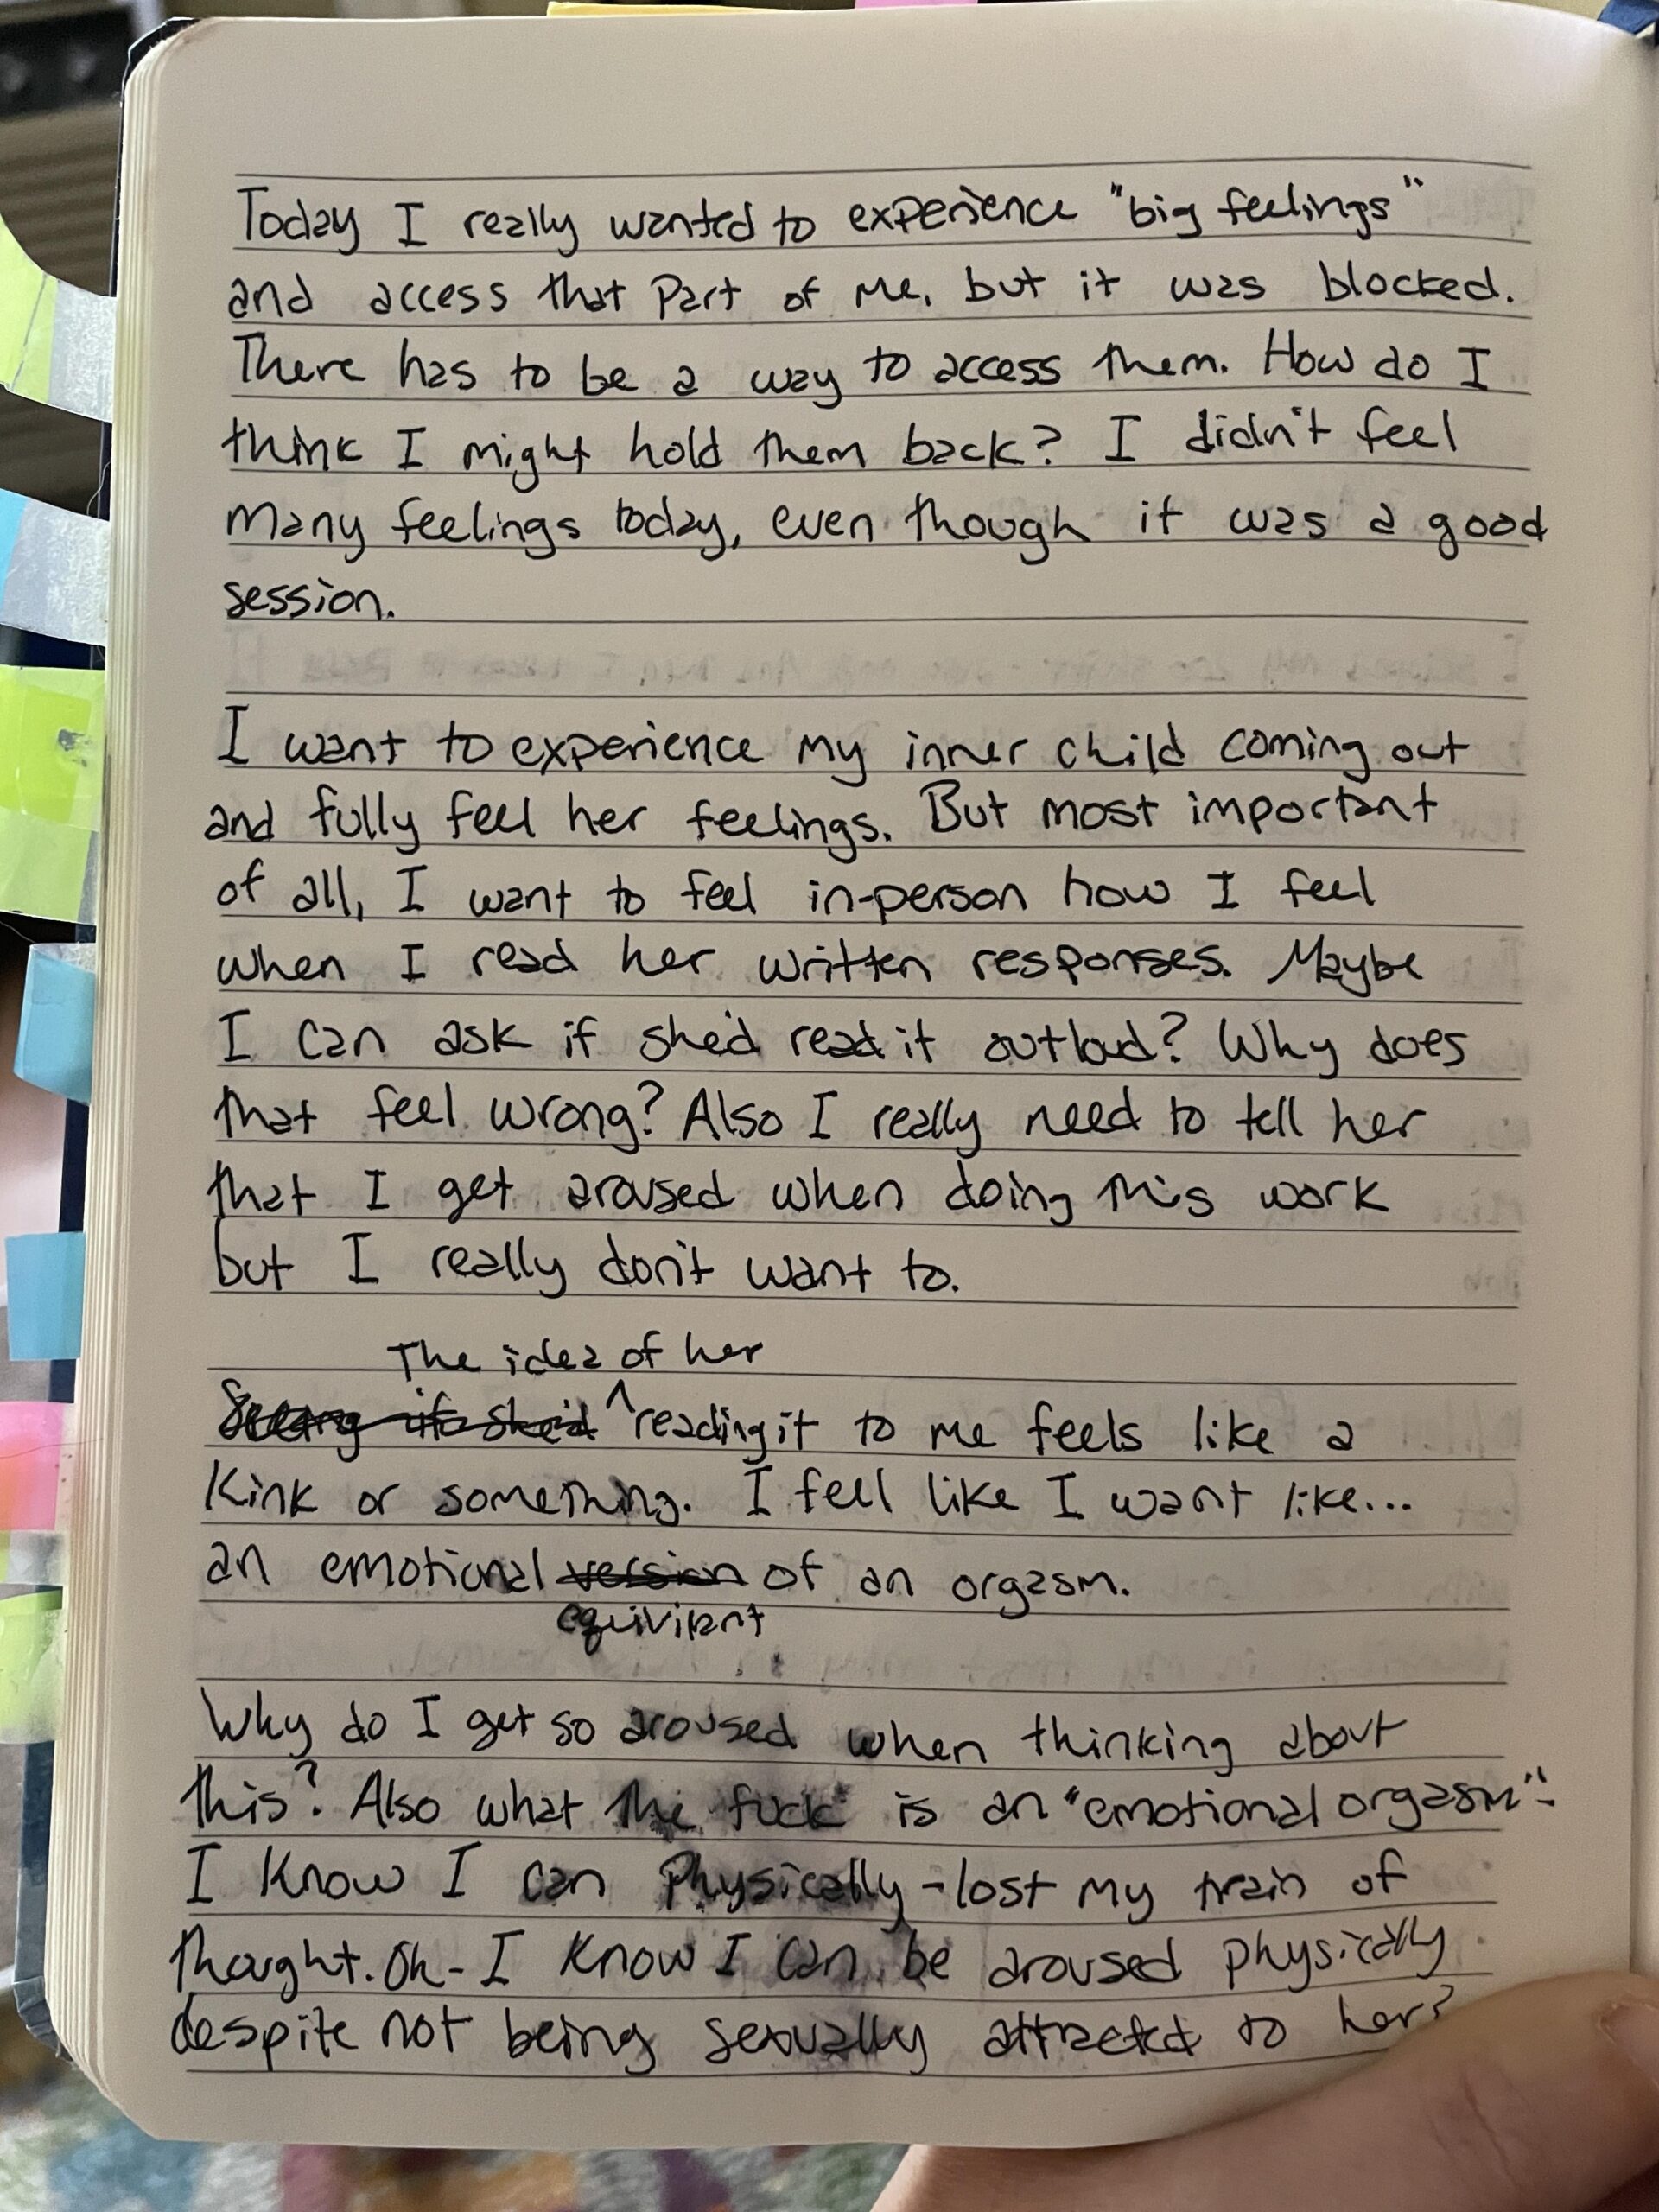 Today I really wanted to experience "big feelings"
and access that part of me, but it was blocked.
There has to be a way to access them. How do I
think I might hold them back? I didn't feel
many feelings today, even though it was a good
session.
I want to experience my inner child coming out
and fully feel her feelings. But most important
of all, I want to feel in-person how I feel
when I read her written responses. Maybe
I can ask if she'd read it outloud? Why does
that feel wrong? Also I really need to tell her
that I get aroused when doing this work
but I really don't want to.
The idea of her
Seeing if she'd ^ reading it to me feels like a
kink or something. I feel like I want like...
an emotional version of an orgasm.
equivilant
Why do I get so aroused when thinking about
this? Also what the fuck is an "emotional orgasm".
I know I can physically - lost my train of
thought. Oh - I know I can be aroused physically
despite not being sexually attracted to her?